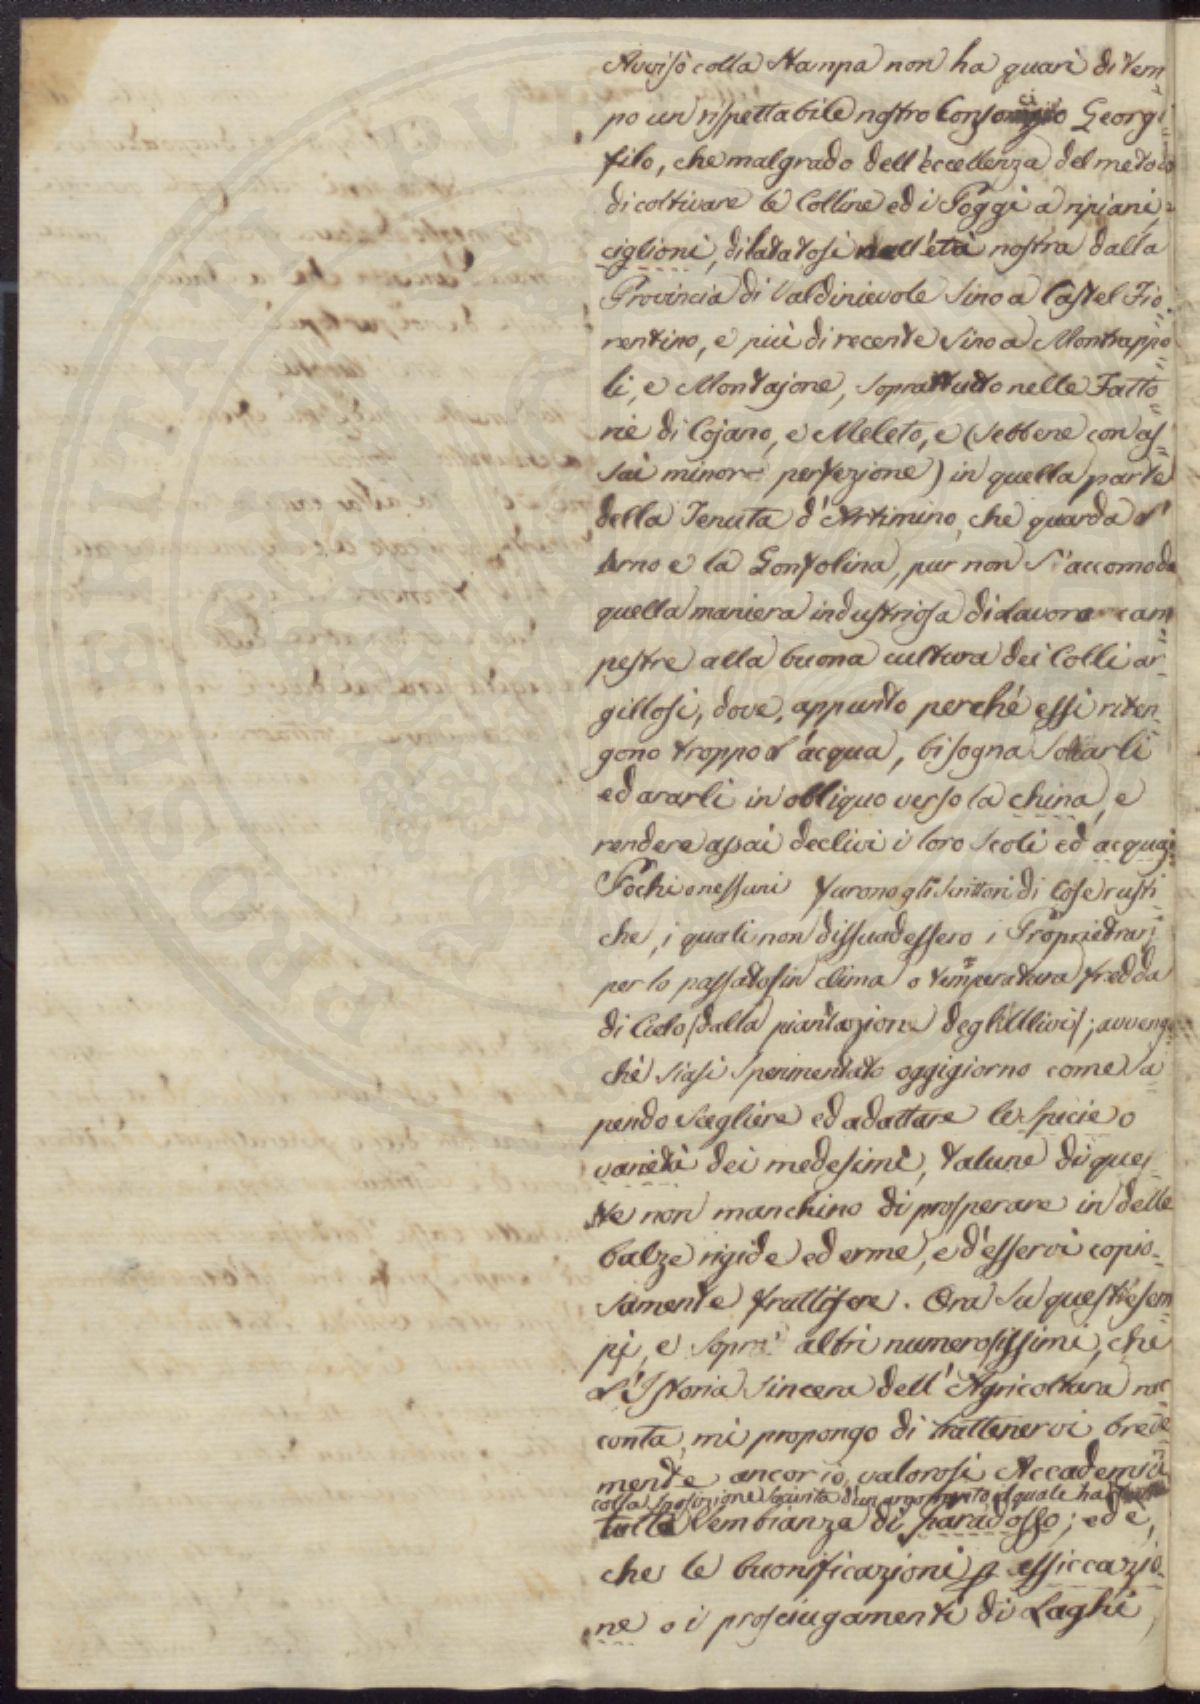 Avvisò colla Stampa non ha guari di tem=
po un rispettabile nostro Consocio Georgi=
filo, che malgrado dell'Eccellenza del metodo
di coltivare le Colline ed i Poggi a ripiani, e
ciglioni, dilatatosi nell'età nostra dalla
Provincia di Valdinievole sino a Castel Fio=
rentino, e più di recente sino a Montrappo=
li, e Montajone, soprattutto nelle Fatto=
rie di Cojano, e Meleto, e (sebbene con as=
sai minore perfezione) in quella parte
della Tenuta d'Artimino, che guarda l'
Arno e la Gonfolina, pur non s'accomoda
quella maniera industriosa di lavoro cam=
pestre alla buona cultura dei Colli ar=
gillosi, dove, appunto perché essi riten=
gono troppo l'acqua, bisogna solcarli
ed ararli in obliquo verso la china, e
rendere assai declivi i loro scoli ed acquaj.
Pochi o nessuni furono gli Scrittori di Cose rusti=
che, i quali non dissuadessero i Proprietarj
per lo passato in clima o temperatura fredda
di Cielo dalla piantazione degli Ulivi; avvenga
ché siasi sperimentato oggigiorno come sa=
pendo scegliere ed adattare le specie o
varietà dei medesimi, talune di ques=
te non manchino di prosperare in delle
balze rigide ed erme, e d'esservi copio=
samente fruttifere. Ora su questi esem=
pj, e sopra altri numerosissimi, che
l'Istoria sincera dell'Agricoltura rac=
conta, mi propongo di trattenervi breve=
mente ancor io, valorosi Accademici
colla sposizione d'un argomento il quale ha
tutta sembianza di paradosso; ed è,
che le buonificazioni p essiccazio=
ne o i prosciugamenti di Laghi,